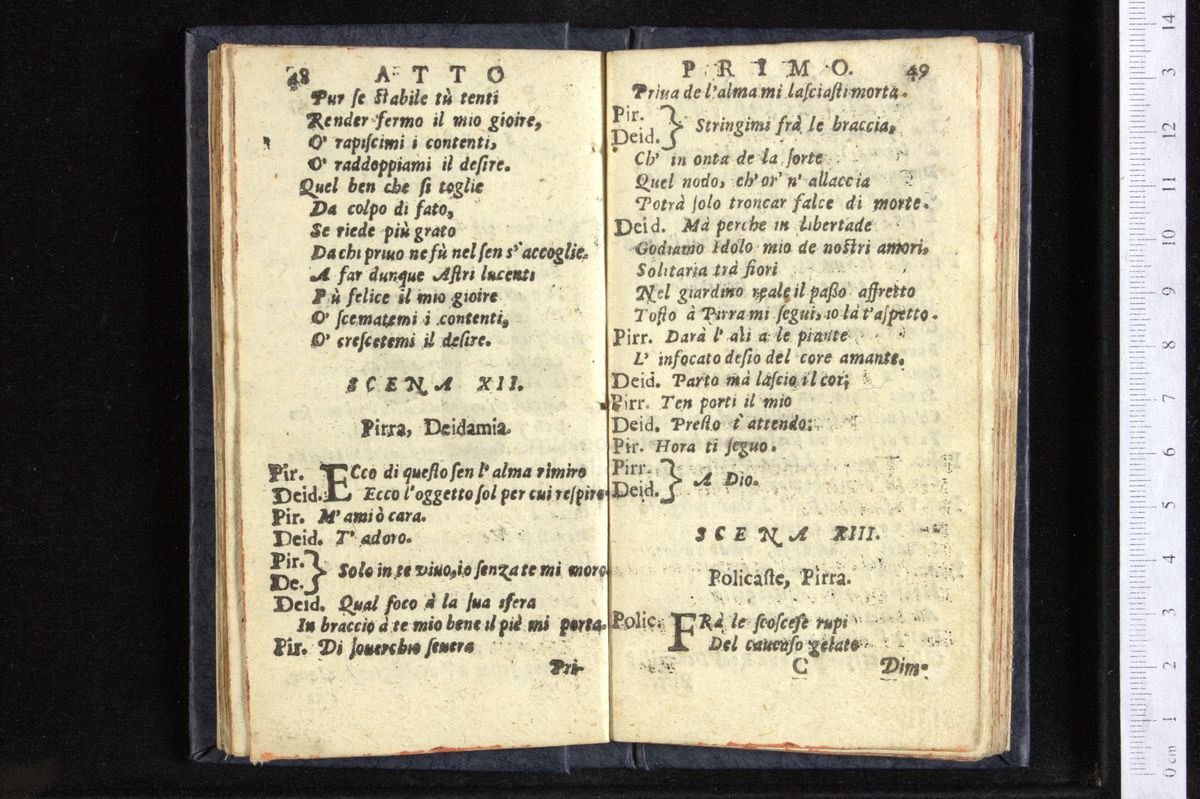 48 ATTO
Pur se stabile tù tenti
Render fermo il mio gioire,
O' rapiscimi i contenti,
O' raddoppiami il desire.
Quel ben che si toglie
Da colpo di fato,
Se riede più grato
Da chi priuo ne fù nel sen s'accoglie.
A far dunque Astri lucenti
Più felice il mio gioire
O' scematemi i contenti,
O' crescetemi il desire.
SCENA XII.
Pirra, Deidamia.
Pir. ECco di questo sen l'alma rimiro
Deid. Ecco l'oggetto sol per cui respiro
Pir. M'ami ò cara.
Deid. T'adoro.
Pir.
De. } Solo in te viuo, io senza te mi moro
Deid. Qual foco à la sua sfera
In braccio à te mio bene il piè mi porta.
Pir. Di souerchio seuera
Pri-
PRIMO. 49
Priua de l'alma mi lasciasti morta.
Pir.
Deid. } Stringimi frà le braccia,
Ch' in onta de la sorte
Quel nodo, ch'or' n' allaccia
Potrà solo troncar falce di morte.
Deid. Mà perche in libertade
Godiamo Idolo mio de nostri amori,
Solitaria trà fiori
Nel giardino reale il passo affretto
Tosto à Pirra mi segui, io là t'aspetto.
Pirr. Darà l' ali a le piante
L' infocato desio del core amante.
Deid. Parto mà lascio il cor;
Pirr. Ten porti il mio
Deid. Presto t'attendo:
Pir. Hora ti seguo.
Pirr.
Deid. } A Dio.
SCENA XIII.
Policaste, Pirra.
Polic. FRà le scoscese rupi
Del caucaso gelato
C Dim-